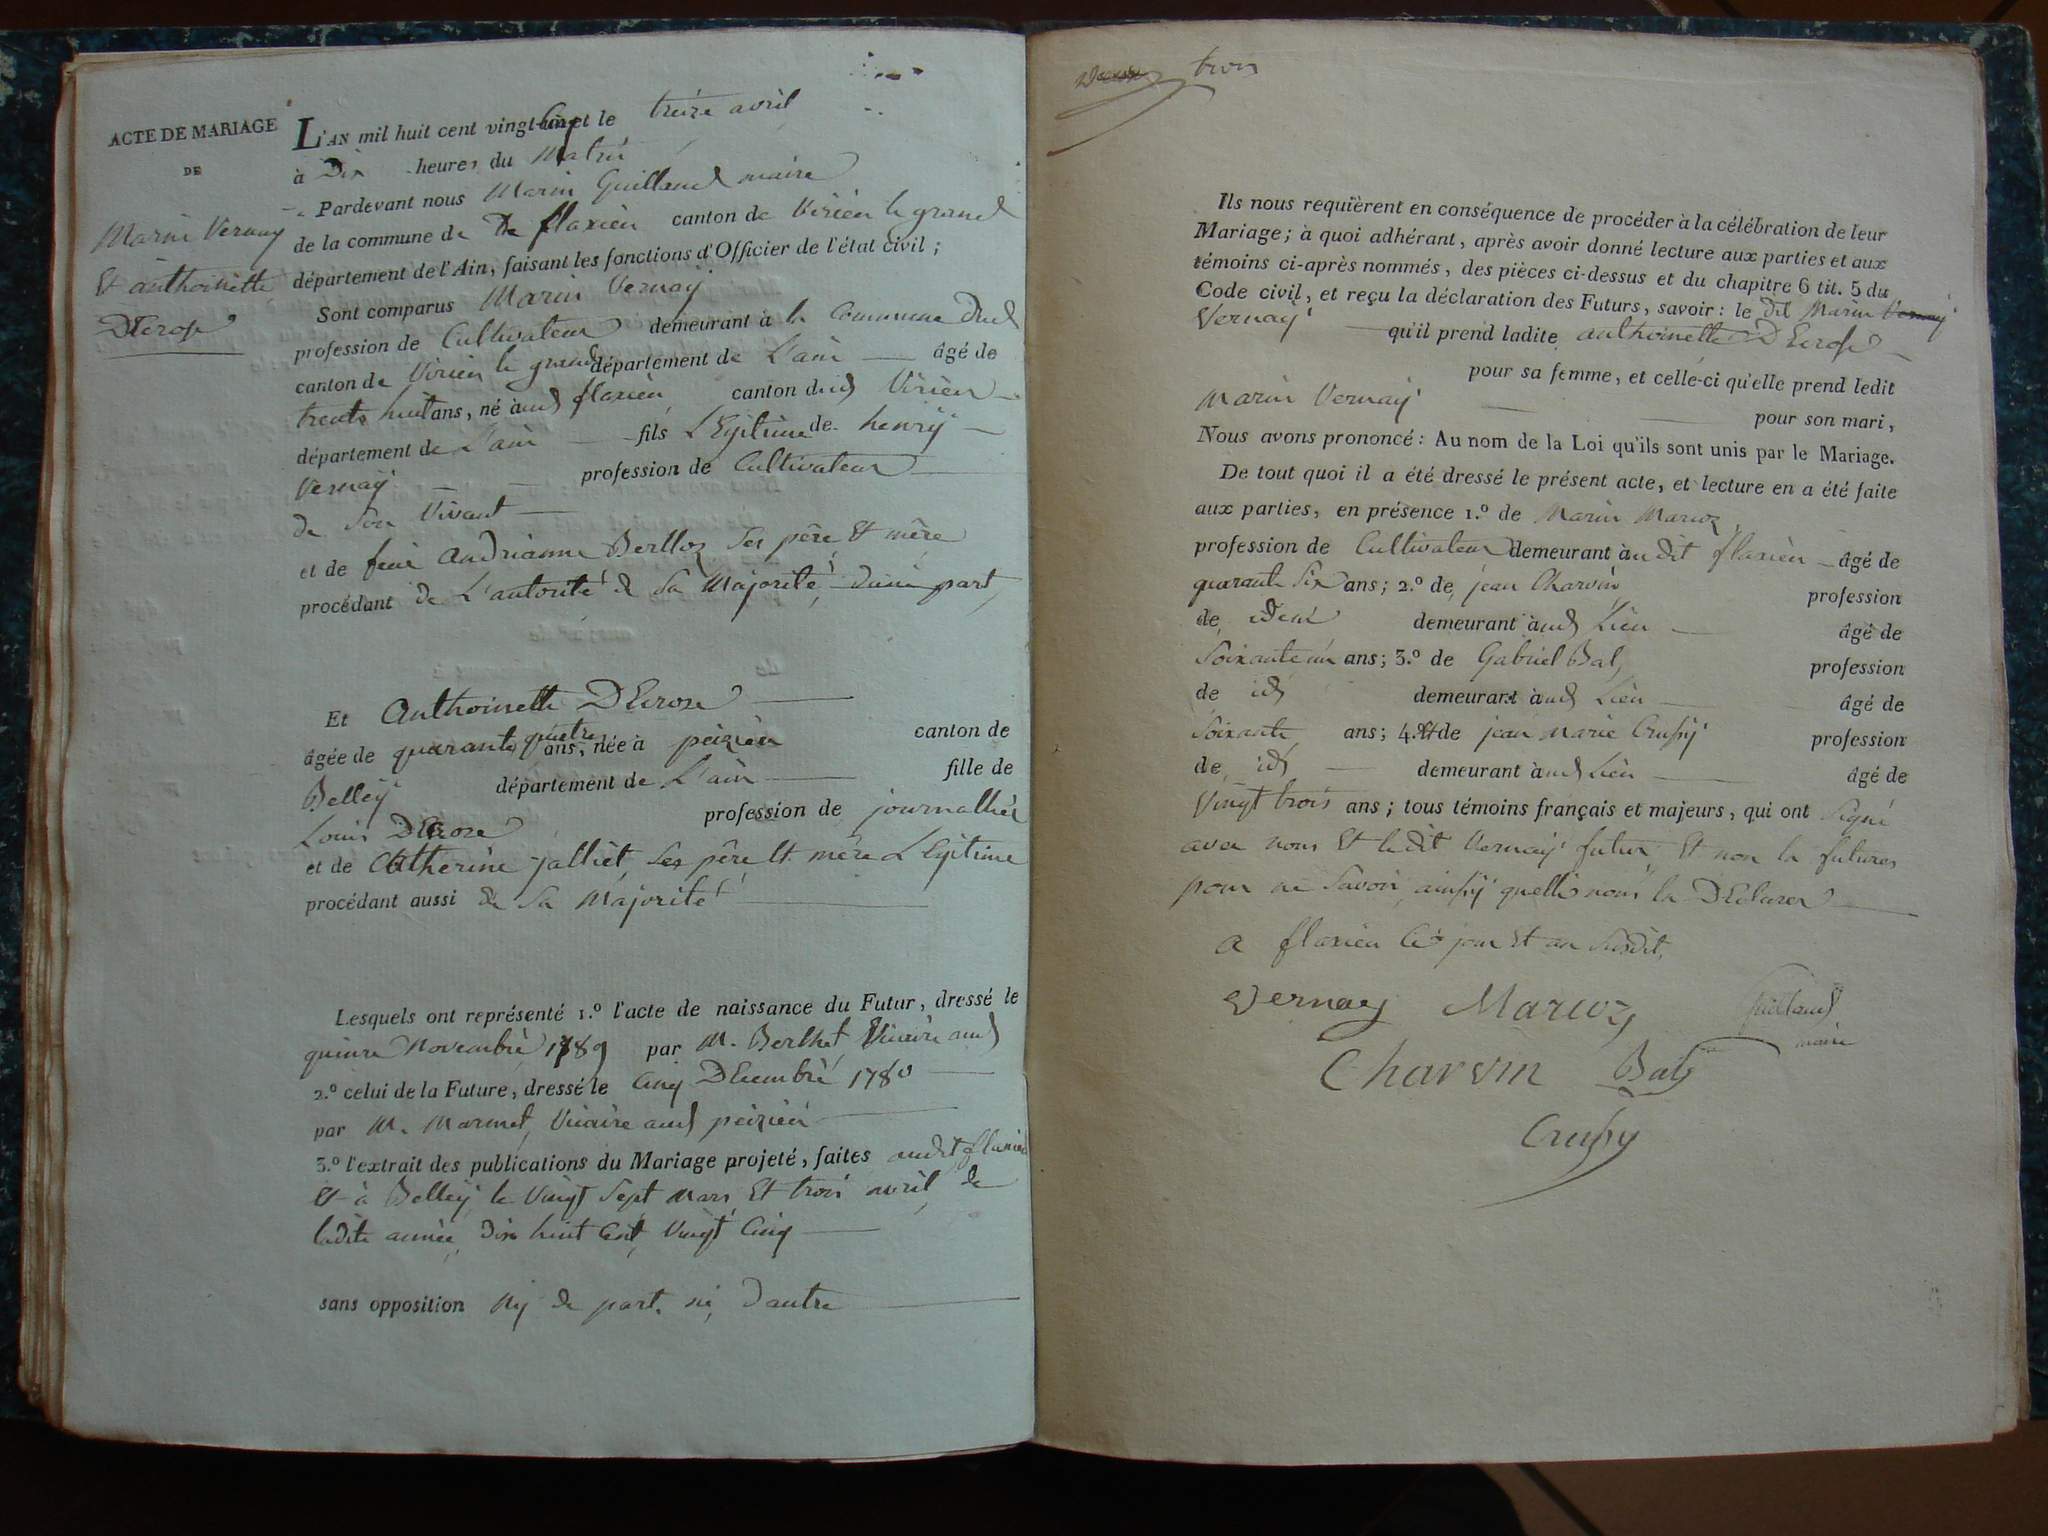 ACTE DE MARIAGE
DE
Marin Vernay
Et anthoinette
DEcrose
L'AN mil huit cent vingt-cinq et le treize avril
à Dix heures du Matin
Pardevant nous Marin Guilland maire
de la commune de De flaxieu canton de Virieu le grand
département de l'Ain, faisant les fonctions d'Officier de l'état civil;
Sont comparus Marin Vernay
profession de Cultivateur demeurant à la Commune Dud
canton de Virieu le grand département de L'ain âgé de
trente huit ans, né à aud flaxieu canton dud Virieu
département de L'ain fils LEgitime de henrÿ
Vernaÿ profession de Cultivateur
de Son Vivant
et de feue andrianne Berlloz Ses père Et mère
procédant de L'autorité de Sa Majorité, dune part,
Et Anthoinette DEcrose
âgée de quarante quatre ans, née à peizieu canton de
Belleÿ département de L'ain fille de
Louis DEcrose profession de journallier
et de Catherine jalliet Ses père Et mère LEgitime
procédant aussi de Sa Majorité
Lesquels ont représenté 1.º l'acte de naissance du Futur, dressé le
quinze Novembre 1789 par M. Berthet Vicaire aud
2.º celui de la Future, dressé le Cinq DEcembre 1780
par M. Marmet, Vicaire aud peizieu
3.º l'extrait des publications du Mariage projeté, faites audit flaxieu
Et à Belleÿ le Vingt Sept Mars Et trois avril de
ladite année Dix huit Cent Vingt Cinq
sans opposition Nÿ de part ni dautre
trois
Ils nous requièrent en conséquence de procéder à la célébration de leur
Mariage; à quoi adhérant, après avoir donné lecture aux parties et aux
témoins ci-après nommés, des pièces ci-dessus et du chapitre 6 tit. 5 du
Code civil, et reçu la déclaration des Futurs, savoir: le dit Marin Vernay
Vernaÿ qu'il prend ladite anthoinette DEcrose
pour sa femme, et celle-ci qu'elle prend ledit
Marin Vernaÿ pour son mari,
Nous avons prononcé: Au nom de la Loi qu'ils sont unis par le Mariage.
De tout quoi il a été dressé le présent acte, et lecture en a été faite
aux parties, en présence 1.º de Marin Marcoz
profession de Cultivateur demeurant à audit flaxieu âgé de
quarante Six ans; 2.º de jean Charvin profession
de idem demeurant à aud Lieu âgé de
Soixante un ans; 3.º de Gabriel Bal profession
de id demeurant à aud Lieu âgé de
Soixante ans; 4. Et de jean Marie Crussÿ profession
de id demeurant à aud Lieu âgé de
Vingt trois ans; tous témoins français et majeurs, qui ont Signé
avec nous Et ledit Vernaÿ futur, Et non la future
pour ne Savoir, ainsÿ quelle nous la DEclarer
a flaxieu Ce jour Et an Susdit,
Vernay Marcoz Guilland
maire
Charvin Bal
Crussy